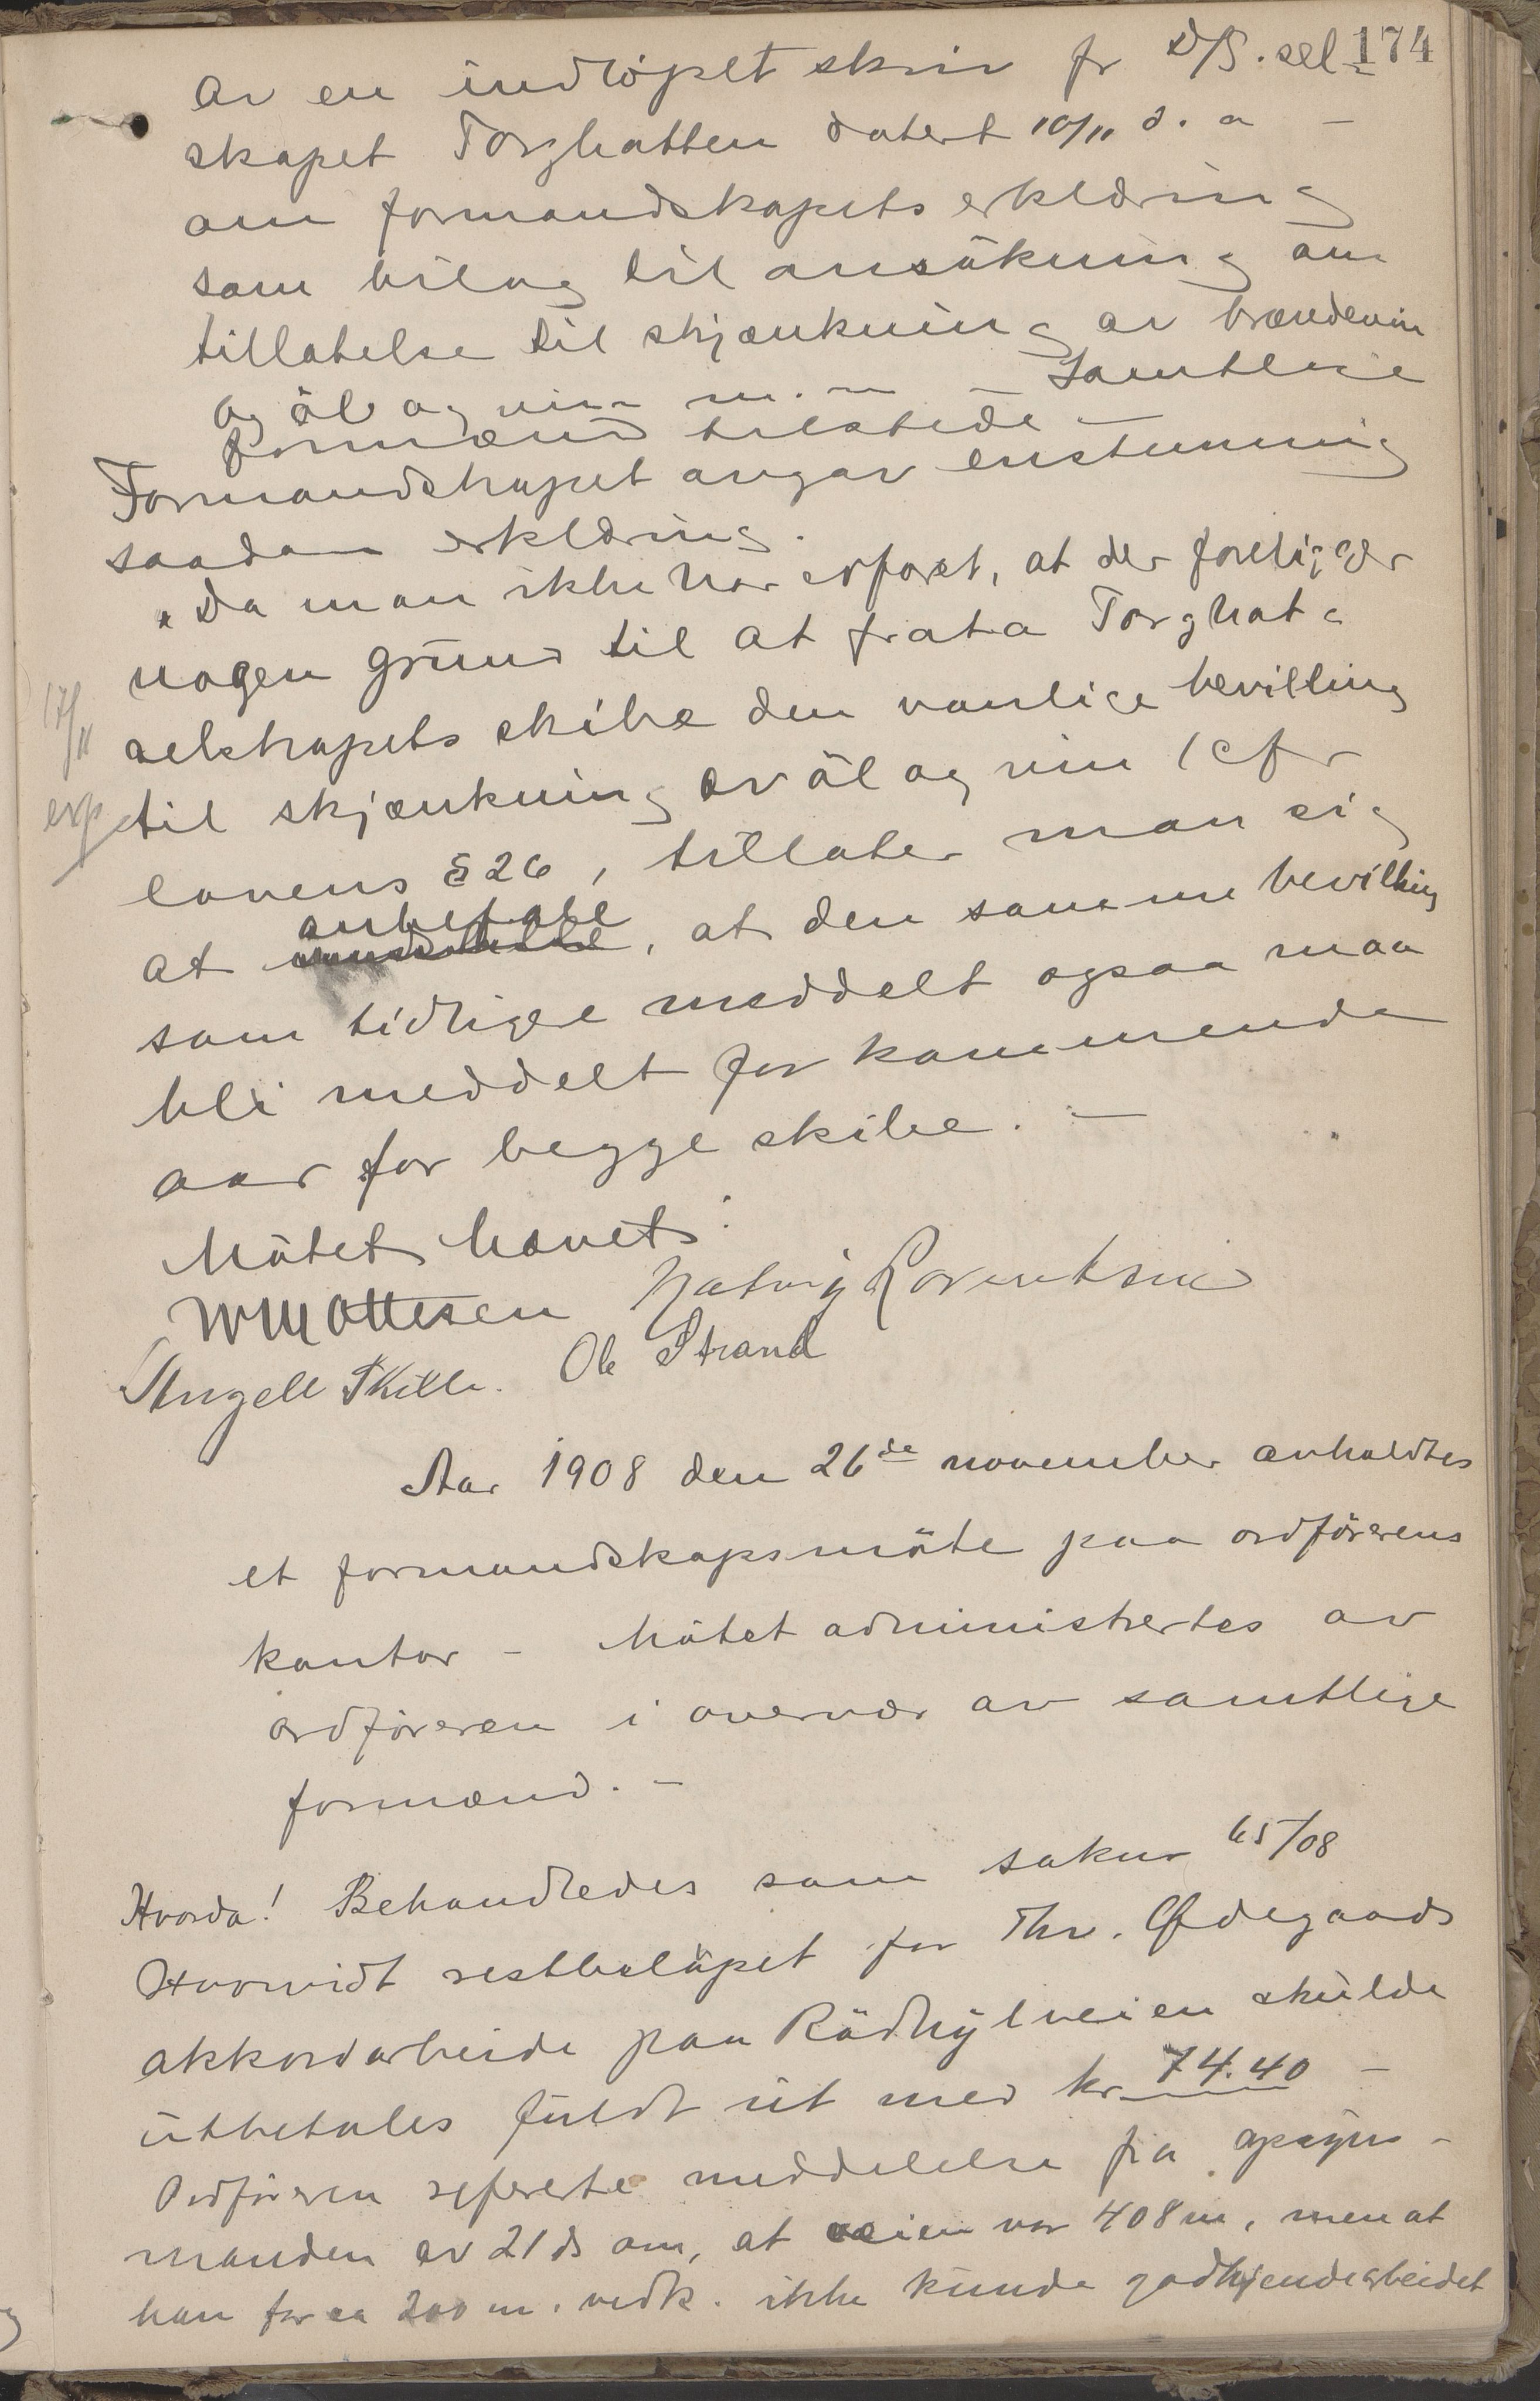 174
av en indløpet skriv fr D/S. sel-
skapet Torghatten datert 10/11 d. a –
om formandskapets erklæring
som bilag til ansökning om
tillatelse til skjænkning av brændevin
og öl og vin m. m – Samtlige
formænd tilstede –
Formandskapet avgav enstemmig
saadan erklæring.
"Da man ikke har erfaret, at der foreligger
nogen grund til at frata Torghat-
selskapets skibe den vanlige bevilling
17/11
exp
til skjænkning av öl og vin (cfr
lovens § 26, tillater man sig
anbefale
at , at den samme bevilling
som tidligere meddelt ogsaa maa
bli meddelt for kommende
aar for begge skibe. –
Mötet hævet.
WMOttesen Hartvig Lorentsen
Angell Skille. Ole Strand
Aar 1908 den 26de november avholdtes
et formandskapsmöte paa ordförerens
kontor – Mötet administrertes av
ordföreren i overvær av samtlige
formænd. –
Hvorda! Behandledes som saknr 65/08
Hvorvidt restbelöpet for Thv. Ødegaards
akkordarbeide paa Rödhylveien skulde
utbetales fuldt ut med kr 74.40 –
Ordföreren refererte meddelelse fra opsyns-
manden av 21 ds om, at veien var 408 m, men at
han for ca 200 m. vedk. ikke kunde godkjende arbeidet